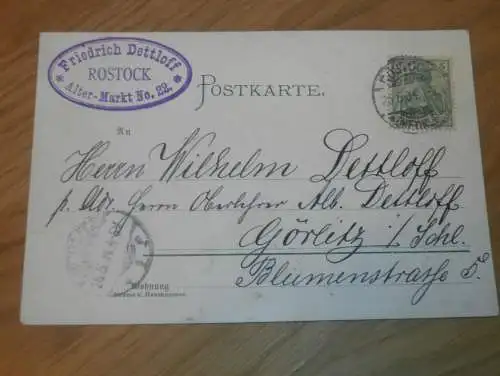 * Friedrich Dettloff *
ROSTOCK
Alter-Markt No. 22.
POSTKARTE.
An
Herrn Wilhelm Dettloff
p. Adr. Herrn Oberlehrer Alb. Dettloff
Görlitz i/Schl.
Blumenstrasse 5.
Wohnung